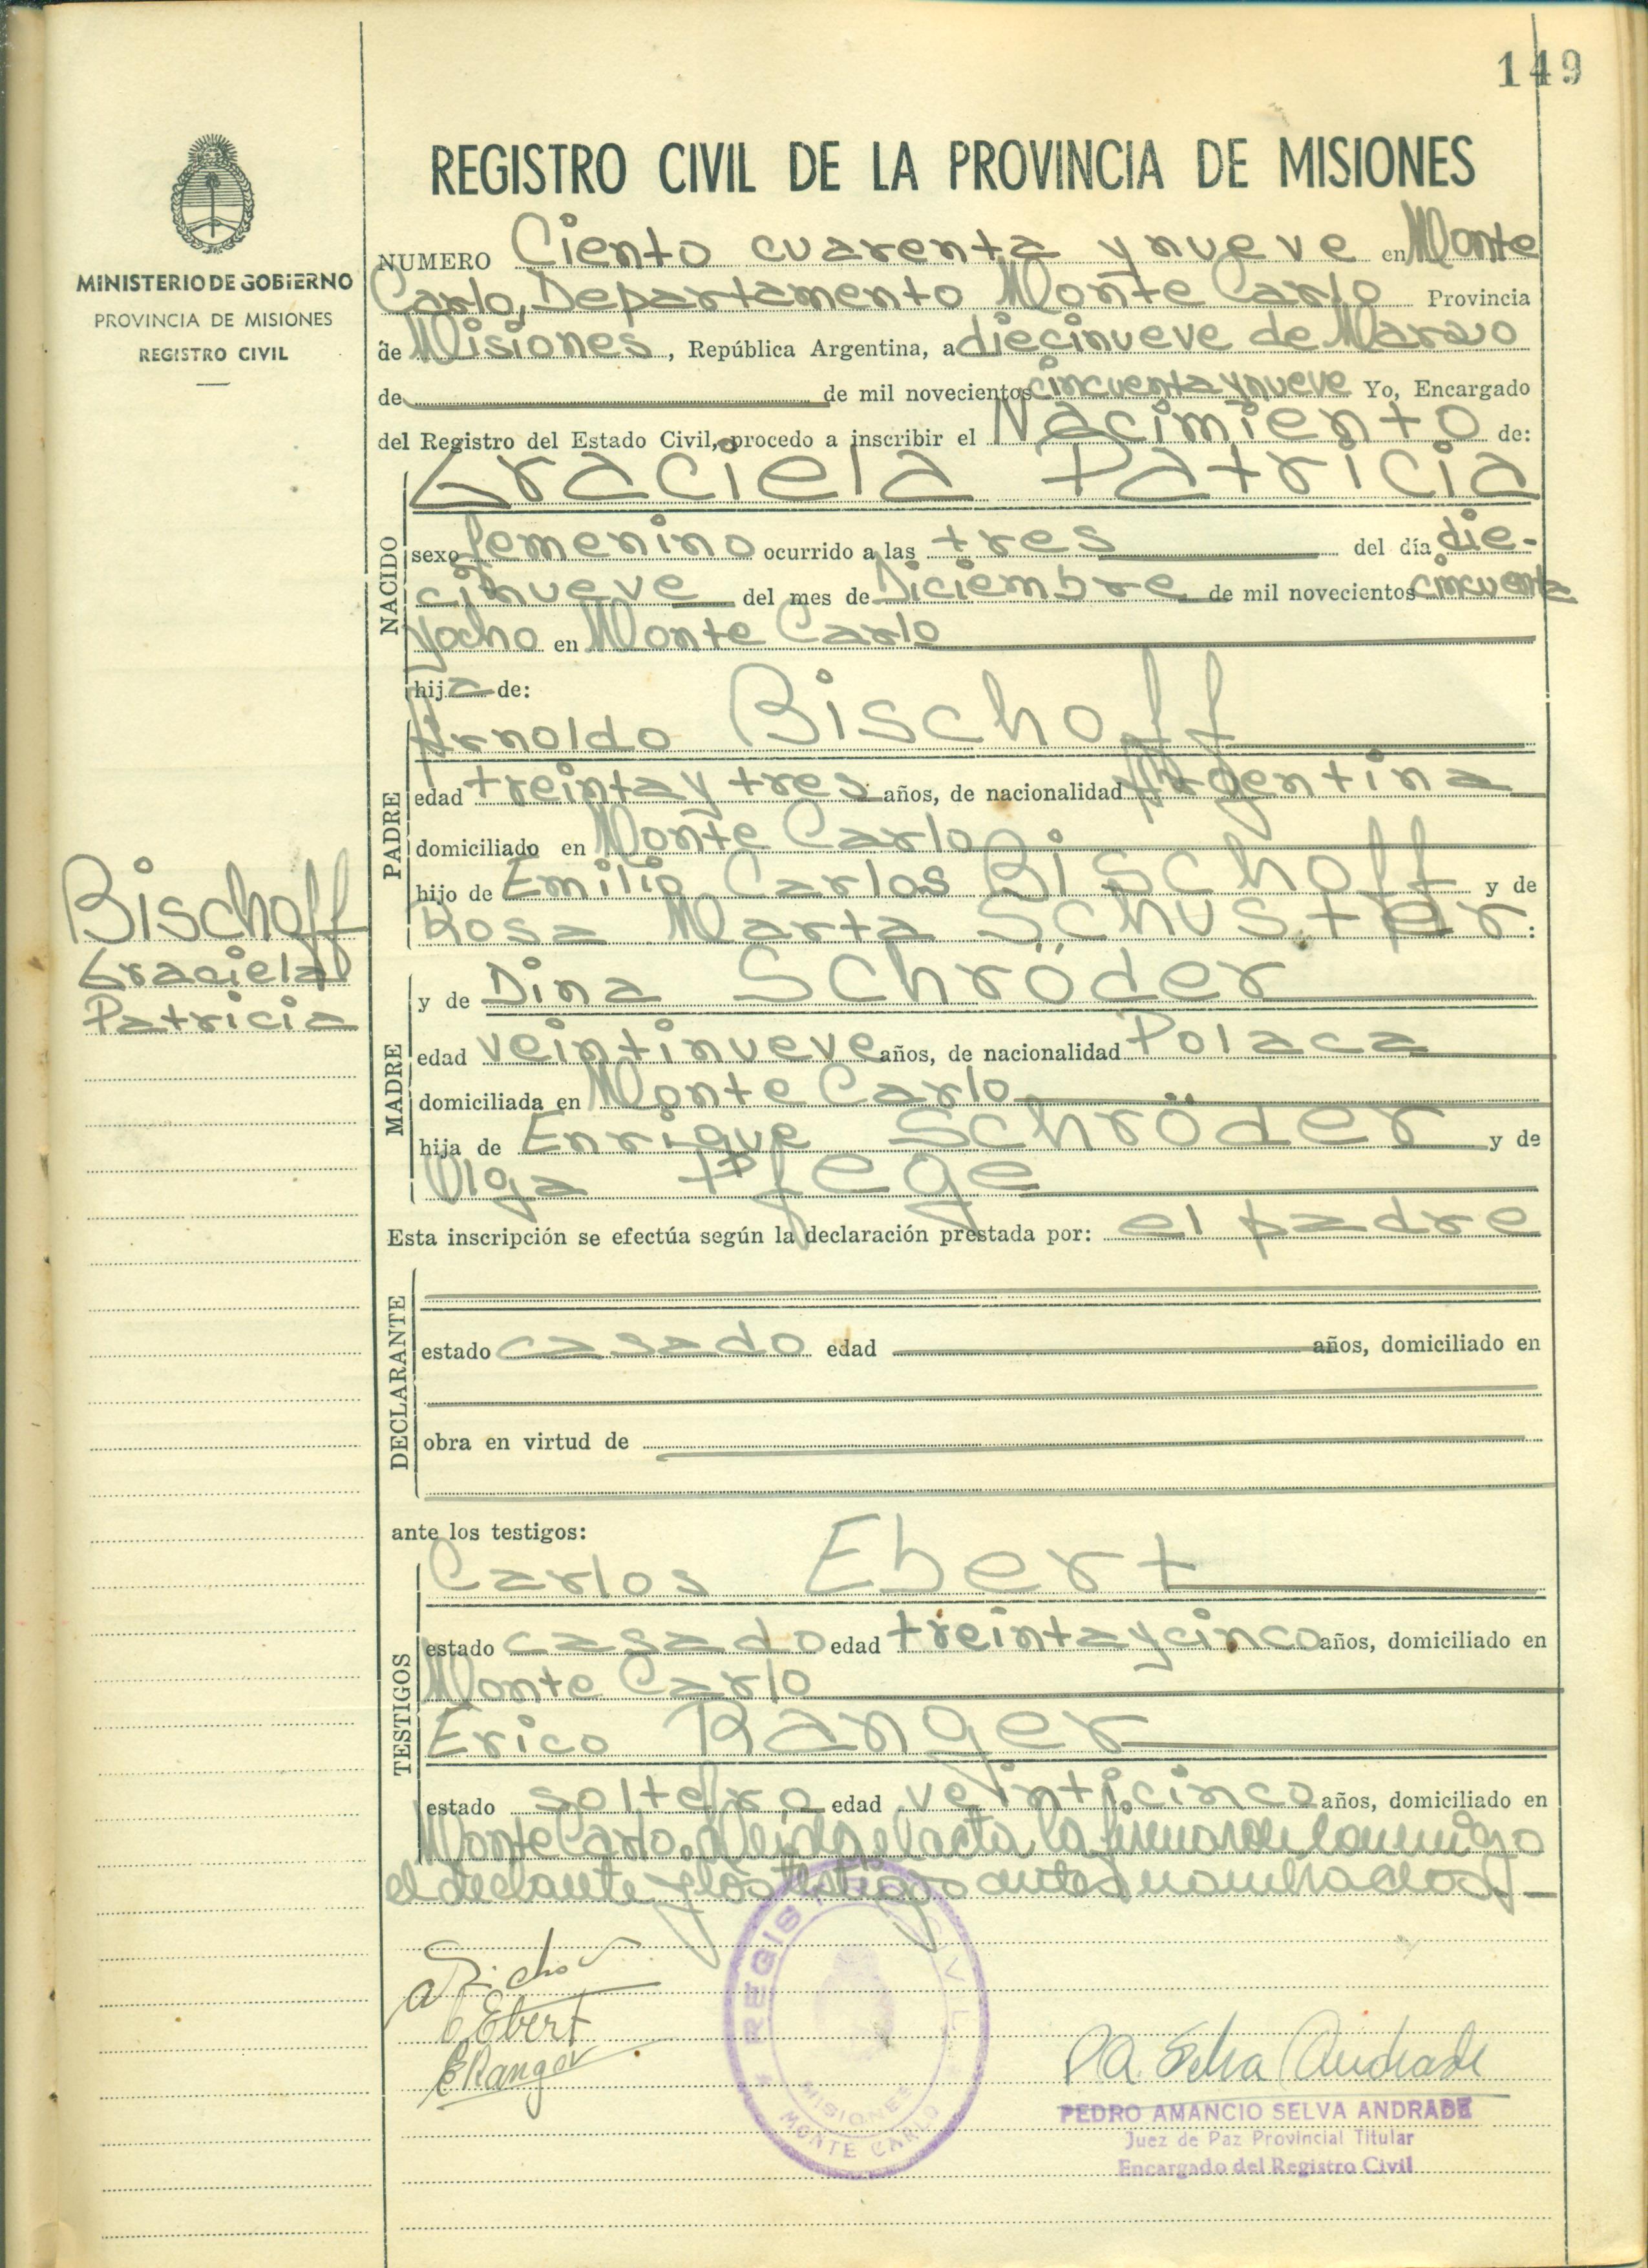 149
REGISTRO CIVIL DE LA PROVINCIA DE MISIONES
MINISTERIO DE GOBIERNO
PROVINCIA DE MISIONES
REGISTRO CIVIL
NUMERO Ciento cuarenta y nueve en Monte
Carlo, Departamento Monte Carlo Provincia
de Misiones, República Argentina, a diecinueve de Marzo
de de mil novecientos cincuenta y nueve Yo, Encargado
del Registro del Estado Civil, procedo a inscribir el Nacimiento de:
NACIDO
Graciela Patricia
sexo femenino ocurrido a las tres del día die-
cinueve del mes de Diciembre de mil novecientos cincuenta
y ocho en Monte Carlo
hija de:
PADRE
Arnoldo Bischoff
edad treinta y tres años, de nacionalidad Argentina
domiciliado en Monte Carlo
hijo de Emilio Carlos Bischoff y de
Rosa Marta Schuster:
Bischoff
Graciela
Patricia
MADRE
y de Dina Schröder
edad veintinueve años, de nacionalidad Polaca
domiciliada en Monte Carlo
hija de Enrique Schröder y de
Olga Pfege
Esta inscripción se efectúa según la declaración prestada por: el padre
DECLARANTE
estado casado edad años, domiciliado en
obra en virtud de
ante los testigos:
TESTIGOS
Carlos Ebert
estado casado edad treinta y cinco años, domiciliado en
Monte Carlo
Erico Ranger
estado soltero edad veinticinco años, domiciliado en
Monte Carlo. Leida el acta la firmaron conmigo
el declante y los testigos antes nombrados.-
C Ebert
E Ranger
REGISTRO CIVIL
MISIONES
MONTE CARLO
P A. Selva Andrade
PEDRO AMANCIO SELVA ANDRADE
Juez de Paz Provincial Titular
Encargado del Registro Civil